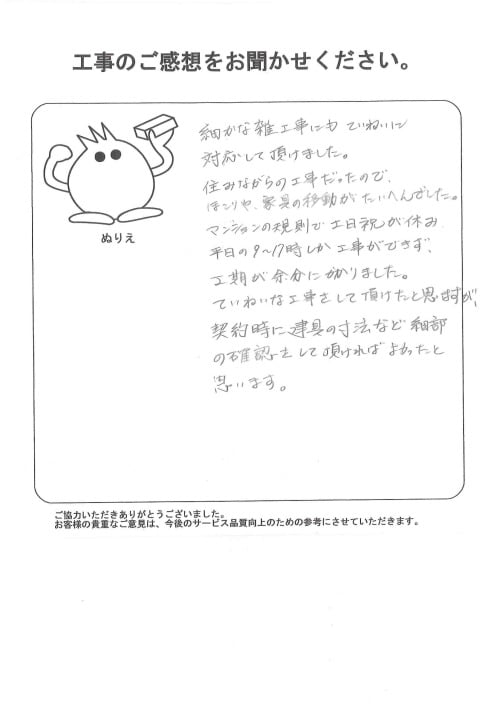 工事のご感想をお聞かせください。
細かな雑工事にも ていねいに
対応して頂けました。
住みながらの工事だったので、
ほこりや、家具の移動がたいへんでした。
マンションの規則で土日祝が休み、
平日の9〜17時しか工事ができず、
工期が余分にかかりました。
ていねいな工事をして頂けたと思いますが、
契約時に建具の寸法など細部
の確認をして頂ければよかったと
思います。
ぬりえ
ご協力いただきありがとうございました。
お客様の貴重なご意見は、今後のサービス品質向上のための参考にさせていただきます。